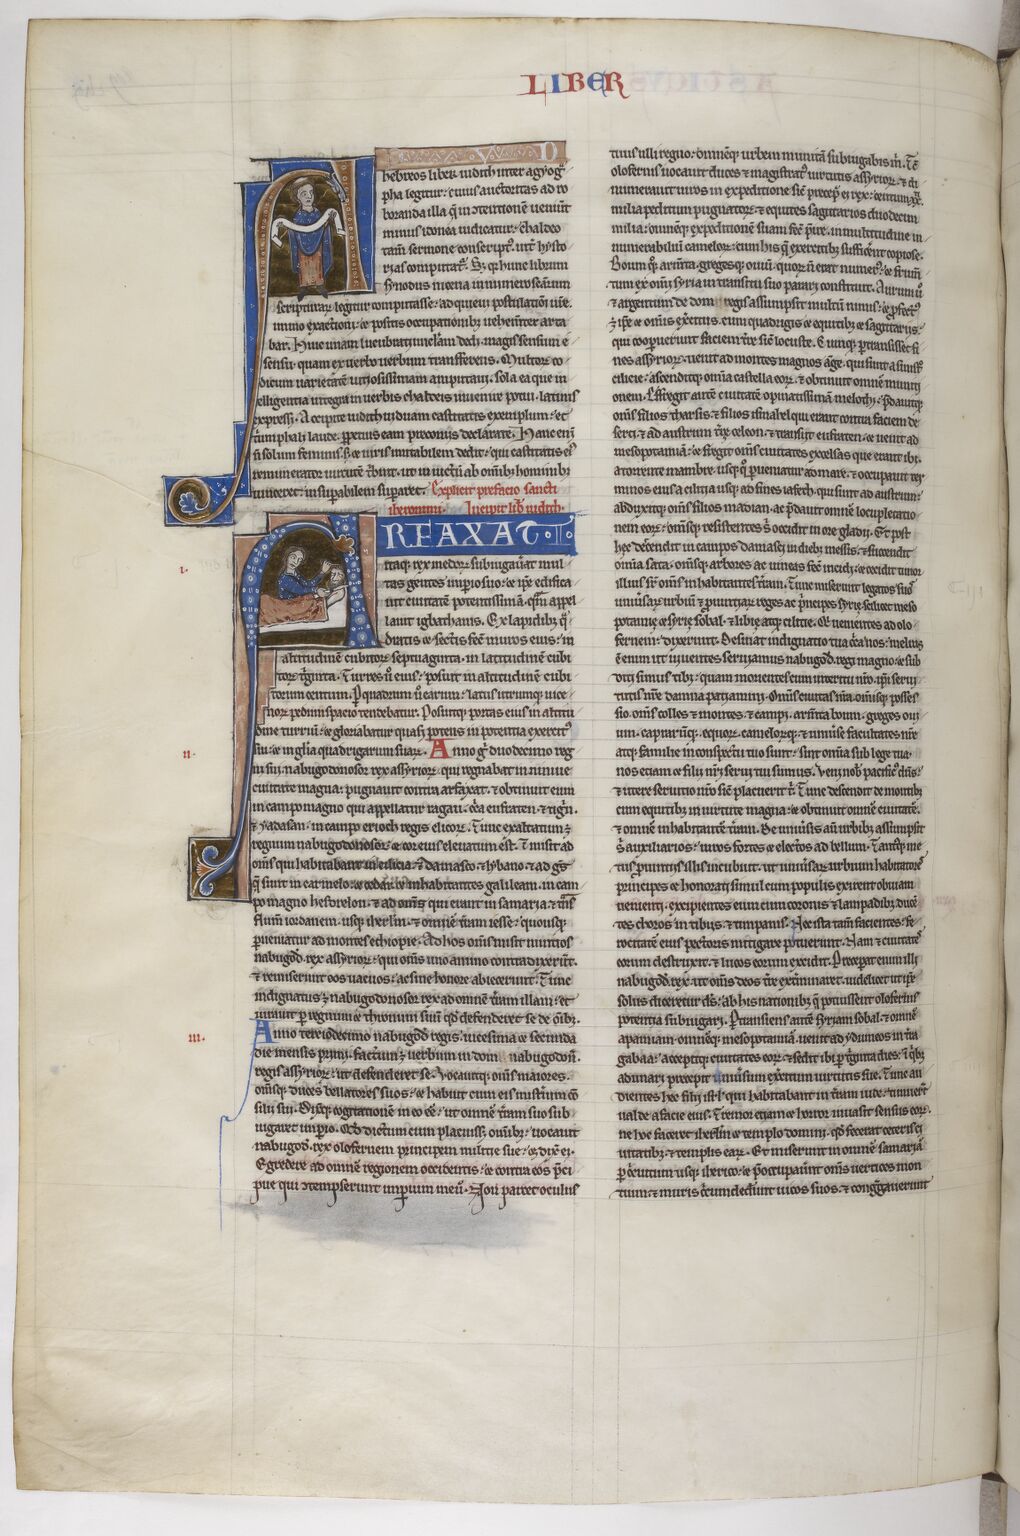 LIBER
A
UD
hebreos liber iudith inter agyog̃
pha legitur: cuius auctoritas ad ro
boranda illa q̃ in ɔtentionẽ ueniũt
minus idonea iudicatur: chaldeo
tam̃ sermone conscript᷒ int̃ hysto
rias computat᷑. Sꝫ q̃ hunc librum
synodus nicena in numero sc̃arum
scripturaꝝ legitur computasse: adquieui postulationi ur̃e.
immo exactioni: ⁊ sepositis occupationibꝫ uehem̃ter arta
bar. huic unam lucubratiunculam dedi: magis sensum e
sensu: quam ex uerbo uerbum transferens. Multoꝝ co
dicum uarietatẽ uitiosissimam amputaui. sola ea que in
telligentia integra in uerbis chaldeis inuenire potui. latinis
expressi. Accipite iudith uiduam castitatis exemplum: et
t̃umphali laude. ꝑpetuis eam preconiis declarate. Hanc eni᷑
ñ solum feminis. sꝫ ⁊ uiris imitabilem dedit: qui castitatis ei᷒
remunerator uirtutẽ t̃buit. ut inuictũ ab omĩbꝫ hominibꝫ
uinceret: insuperabilem suparet. Explicit prefacio sancti
iheronimi. Incipit lib̃ iudith.
A
RFAXAT
i.
itaqꝫ rex medoꝝ subiugau̾at mul
tas gentes imperio suo: ⁊ ip̃e edifica
uit ciuitatẽ potentissimã. quã appel
lauit igbathanis. Ex lapidibꝫ q̃
dratis ⁊ sectis fecit muros eius: in
altitudinẽ cubitoꝝ septuaginta. in latitudinẽ cubi
toꝝ t̃ginta. Turres ũ eius: posuit in altitudinẽ cubi
torum centum. Per quadrum ũ earum: latus utrumqꝫ uice
norꝫ pedum spacio tendebatur. Posuitqꝫ portas eius in altitu
dine turriũ: ⁊ gloriabatur quasi potens in potentia exercit᷒
sui: ⁊ in gl̃ia quadrigarum suaꝝ. Anno g̃ duodecimo reg
ii.
ni sui: nabugodonosor rex assyrioꝝ. qui regnabat in niniue
ciuitate magna: pugnauit contra arfaxat: ⁊ obtinuit eum
in campo magno qui appellatur ragau. c̃ca eufraten. ⁊ tigrĩ.
⁊ yadasan. in campo erioch regis elicoꝝ. Tunc exaltatum ꝫ
regnum nabugodonosor: ⁊ cor eius eleuatum est. ⁊ misit ad
om̃s qui habitabant in cilicia. ⁊ damasco. ⁊ lybano. ⁊ ad g̃tes
q̃ sunt in carmelo. ⁊ cedar. ⁊ inhabitantes galileam. in cam
po magno hesdrelon. ⁊ ad om̃s qui erant in samaria. ⁊ t̃ns
flum̃ iordanem. usqꝫ iherl̃m. ⁊ omnẽ t̃ram iesse: quousqꝫ
ꝑueniatur ad montes ethiopie. Ad hos om̃s misit nuntios
nabugod̃. rex assyrioꝝ: qui om̃s uno animo contradixerũt.
⁊ remiserunt eos uacuos: ac sine honore abiecerunt. Tunc
indignatus ꝫ nabugodonosor rex ad omnẽ t̃ram illam: et
iurauit ꝑ regnum ⁊ thronum suũ q̃d defenderet se de õibꝫ.
iii.
Anno terciodecimo nabugod̃. regis. uicesima ⁊ secunda
die mensis primi. factum ꝫ uerbum in domo nabugodon̾.
regis assyrioꝝ: ut defenderet se. Vocauitqꝫ om̃s maiores.
om̃sqꝫ duces bellatores suos: ⁊ habuit cum eis misteriũ cõ
silii sui. Dixitqꝫ cogitationẽ in eo ẽe: ut omnẽ t̃ram suo sub
iugaret imperio. Quod dictum cum placuiss̾ omĩbꝫ: uocauit
nabugod̃. rex olofernem principem militie sue: ⁊ dix̾ ei.
Egredere ad omnẽ regionem occidentis: ⁊ contra eos p̃ci
pue qui ɔtempserunt imperium meũ. Non parcet oculus
tuus ulli regno: omnẽqꝫ urbem munitã subiugabis m̃. Tc̃
olofernis uocauit duces ⁊ magistrat᷒ uirtutis assyrioꝝ. ⁊ di
numerauit uiros in expeditione sic̃ precep̃ ei rex: centum xx.
milia peditum pugnatoꝝ: ⁊ equites sagittarios duodecim
milia: omnẽqꝫ expeditionẽ suam fec̃ p̃ire. in multitudine in
numerabiliũ cameloꝝ: cum his q̃ exercitibꝫ sufficerẽt copiose.
Boum q̃qꝫ arm̃ta. gregesqꝫ ouiũ. quoꝝ ñ erat numer᷒: ⁊ frum̃
tum ex om̃i syria in transitu suo parari constituit. Aurum ũ
⁊ argentum de domo regis assumpsit multũ nimis: ⁊ ꝓfect᷒
ꝫ ip̃e ⁊ om̃is exercitus. cum quadrigis ⁊ equitibꝫ ⁊ sagittariis:
qui cooperuerunt faciem t̃re sic̃ locuste. Cumqꝫ ꝑtransisset fi
nes assyrioꝝ: uenit ad montes magnos ãge. qui sunt a sinist̃s
cilicie: ascenditqꝫ om̃ia castella eoꝝ. ⁊ obtinuit omnẽ muniti
onem. Effregit aut̃e ciuitatẽ opinatissimã melothi: p̃dauitqꝫ
om̃s filios tharsis. ⁊ filios ismahel qui erant contra faciem de
serti: ⁊ ad austrum t̃re celeon. ⁊ transiit eufraten: ⁊ uenit ad
mesopotamiã: ⁊ fregit om̃s ciuitates excelsas que erant ibi.
a torrente mambre. usqꝫ q̃ ꝑueniatur ad mare. ⁊ occupauit ter
minos eius a cilicia usqꝫ ad fines iafeth. qui sunt ad austrum:
abduxitqꝫ om̃s filios madian. ac p̃dauit omnẽ locupletatio
nem eoꝝ: om̃sqꝫ resistentes s̾ occidit in ore gladii. Et post
hec descendit in campos damasci in diebꝫ messis. ⁊ succendit
om̃ia sata: om̃sqꝫ arbores ac uineas fec̃ incidi: ⁊ cecidit timor
illius sr̃ om̃is inhabitantes t̃ram. Tunc miserunt legatos suos
uniũ᷒saꝝ urbiũ ⁊ ꝓuinciaꝝ reges ac p̃ncipes syrie scilicet meso
potamie ⁊ syrie sobal. ⁊ libie atqꝫ cilicie. Qui uenientes ad olo
fernem: dixerunt. Desinat indignatio tua c̃ca nos: melius
ẽ enim ut uiuentes seruiamus nabugod̃. regi magno: ⁊ sub
diti simus tibi: quam morientes cum interitu nr̃o. ip̃i serui
tutis nr̃e damna patiamini. Om̃is ciuitas nr̃a. om̃isqꝫ posses
sio. om̃s colles ⁊ montes. ⁊ campi. arm̃ta boum. greges oui
um. caprarũqꝫ. equoꝝ. cameloꝝqꝫ. ⁊ uniũse facultates nr̃e
atqꝫ familie in conspectu tuo sunt: sint om̃ia sub lege tua.
nos etiam ⁊ filii nr̃i serui tui sumus. Veni nobis pacific᷒ dñs:
⁊ utere seruitio nr̃o sic̃ placuerit t̃. Tunc descendit de montibꝫ
cum equitibꝫ in uirtute magna: ⁊ obtinuit omnẽ ciuitatẽ.
⁊ omnẽ inhabitantẽ t̃ram. De uniũsis aũt urbibꝫ assumpsit
s̾ auxiliarios: uiros fortes ⁊ electos ad bellum. Tantusqꝫ me
tus ꝓuintiis illis incubuit. ut uniũsaꝝ urbium habitatores
principes ⁊ honorati simul cum populis exirent obuiam
uenienti. excipientes eum cum coronis ⁊ lampadibꝫ ducẽ
tes choros in tibiis. ⁊ timpanis. Nec ista tam̃ facientes: fe
rocitatẽ eius pectoris mitigare potuerunt. Nam ⁊ ciuitates
eorum destruxit: ⁊ lucos eorum excidit. Preceperat enim illi
nabugod̃. rex: ut om̃s deos t̃re ext̾minaret. uidelicet ut ip̃e
solus diceretur ds̃: ab his nationibꝫ q̃ potuissent olofernis
potentia subiugari. Ptransiens aut̃e syriam sobal. ⁊ omnẽ
apamiam. omnẽqꝫ mesopotamiã. uenit ad ydumeos in t̃ra
gabaa: accepitqꝫ ciuitates eoꝝ: ⁊ sedit ibi ꝑ t̃ginta dies: ĩ q̃bꝫ
adunari precepit uniũsum exercitum uirtutis sue. Tunc au
dientes hec filii isr̃l qui habitabant in t̃ram iude: timuer̃t
ualde a facie eius. Tremor etiam ⁊ horror inuasit sensus eoꝝ.
ne hoc faceret iherl̃m ⁊ templo domini. q̃d fecerat ceteris ci
uitatibꝫ. ⁊ templis eaꝝ. Et miserunt in omnẽ samariã
ꝑ c̃cuitum usqꝫ iherico: ⁊ p̃occupauer̃t om̃s uertices mon
tium. ⁊ muris c̃cumdeder̃t uicos suos. ⁊ cong̃gauerunt